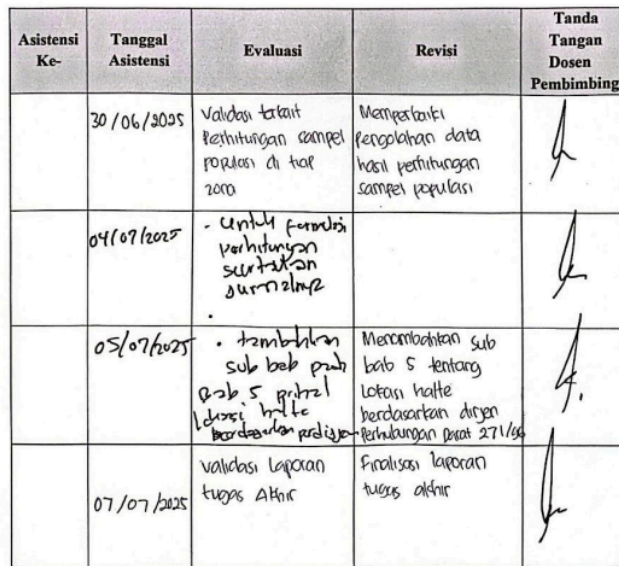 Asistensi Ke-
Tanggal Asistensi
Evaluasi
Revisi
Tanda Tangan Dosen Pembimbing
30/06/2025
Validasi terkait
Perhitungan sampel
populasi di tiap
zona
Memperbaiki
pengolahan data
hasil perhitungan
sampel populasi
04/07/2025
• Untuk formulasi
perhitungan
sertakan
jurnalnya
05/07/2025
• tambahkan
sub bab pada
Bab 5 prihal
lokasi halte
berdasarkan
Menambahkan sub
bab 5 tentang
lokasi halte
berdasarkan dirjen
Perhubungan Darat 271/96
07/07/2025
Validasi laporan
tugas Akhir
Finalisasi laporan
tugas akhir